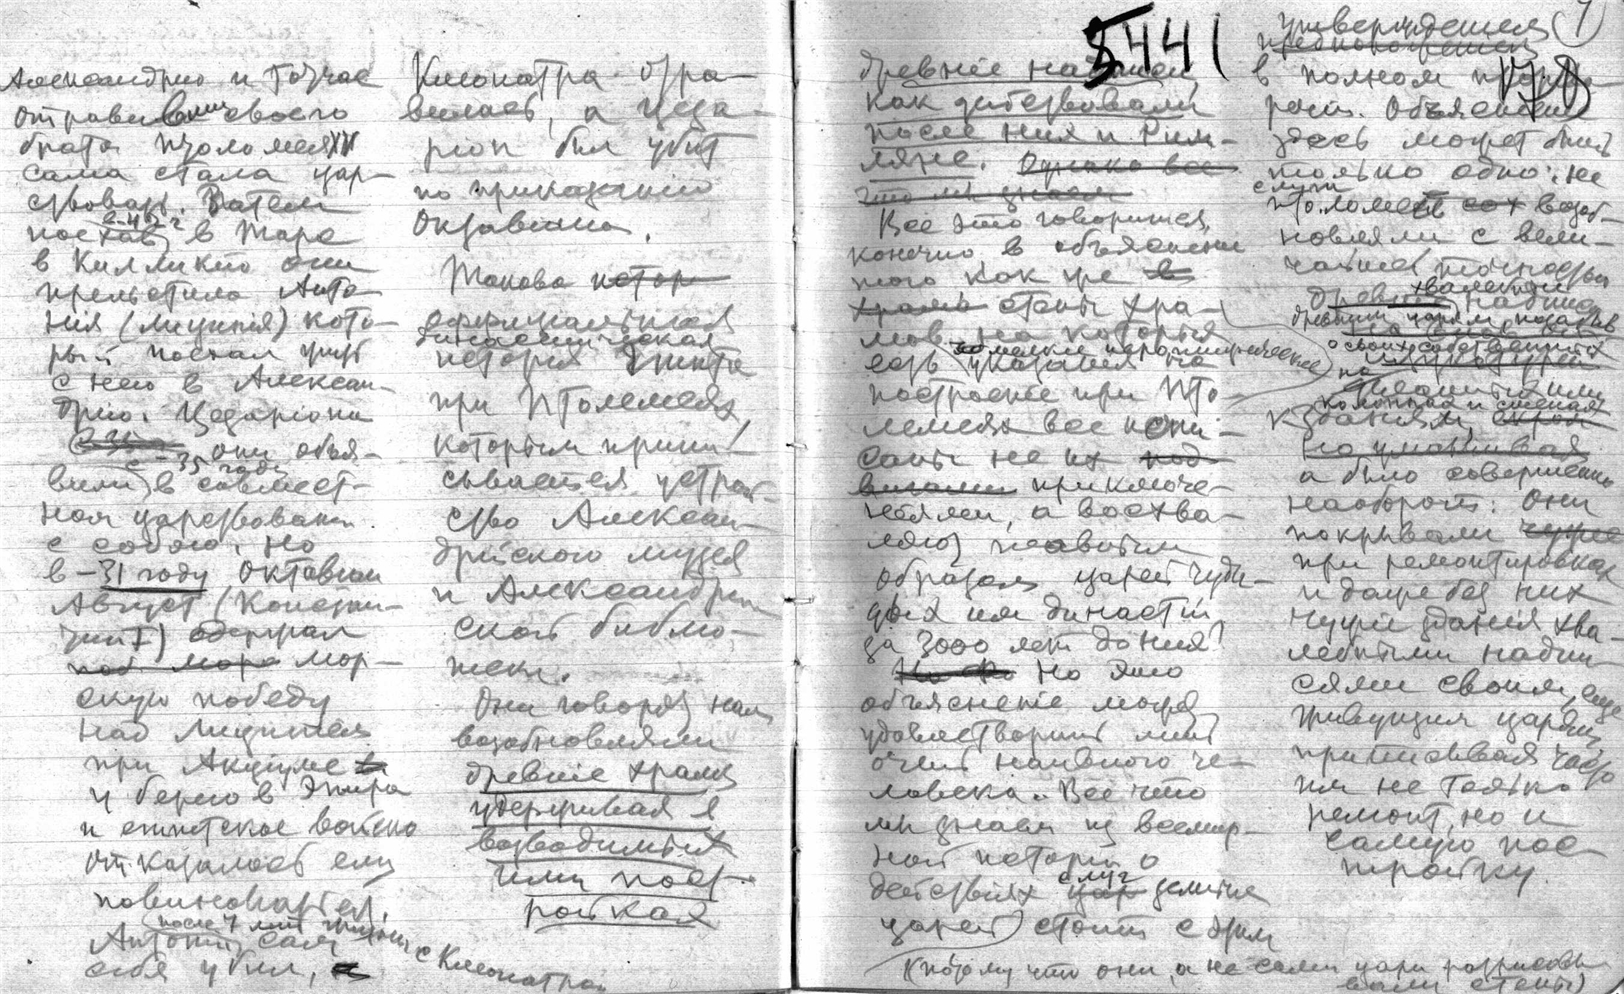 Александрию и тотчас
отравивши своего
брата Птоломея
сама стала цар-
ствовать. Затем
поехав в -41 г
в Тарс
в Килликию она
прельстила Анто-
ния (Лициния) кото-
рый поехал
с нею в Алексан-
дрию. Цезариона
они объя-
вили в -35 году
в совмест-
ном царствовании
с собою. Но
в -31 году Октавиан
Август (Констан-
ций I) одержал
мор-
скую победу
над Лицинием
при Акциуме
у берегов Эпира
и египетское войско
отказалось ему
повиноваться.
Антоний после 7 лет жизни с Клеопатрой
сам
себя убил,
Клеопатра отра-
вилась, а Цеза-
рион был убит
по приказанию
Октавиана.
Такова
официальная
династическая
история Египта
при Птолемеях,
которым припи-
сывается устрой-
ство Алексан-
дрийского музея
и Александрий-
ской библио-
теки.
Они говорят нам
возобновляли
древние храмы
удерживая в
возводимых
ими пост-
ройках
5441
древние надписи,
как действовали
после них и Рим-
ляне. Однако все
что мы знаем
Все это говорится,
конечно в объяснение
того как же
стены хра-
мов на которых
есть указания на
построение при Пто-
лемеях все испи-
саны не их
приключе-
ниями, а восхва-
ляют
образом царей чуж-
дых им династий
за 3000 лет до них?
Но это
объяснение может
удовлетворить лишь
очень наивного че-
ловека. Все что
мы знаем из всемир-
ной истории о
действиях слуг
царей стоит с этим
(потому что они, а не сами цари разрисовы-
вали стены)
утверждением
7
178
в полном
речии. Объяснение
здесь может быть
только одно: не
слуги
Птоломеев возоб-
новляли с вели-
чайшей точностью
хвалебные
надписи
древним царям
о своих собственных
на
колоннах и стенах
а было совершенно
наоборот: они
покрывали
при ремонтировках
и даже без них
чужие здания хва-
лебными надпи-
сями своим, еще
живущим царям,
приписывая часто
им не только
ремонт, но и
самую пос-
тройку.